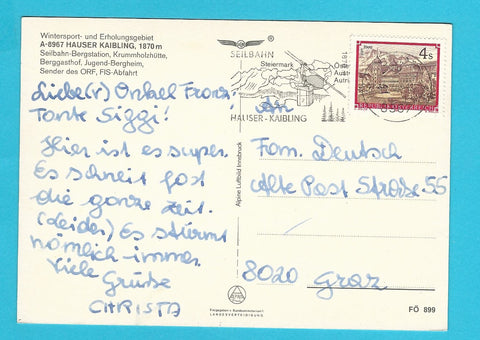 Wintersport- und Erholungsgebiet
A-8967 HAUSER KAIBLING, 1870 m
Seilbahn-Bergstation, Krummholzhütte,
Berggasthof, Jugend-Bergheim,
Sender des ORF, FIS-Abfahrt
Liebe(r) Onkel Franz,
Tante Siggi!
Hier ist es super.
Es schneit fast
die ganze Zeit.
(Leider) Es stürmt
nämlich immer
Viele
Grüße
CHRISTA
SEILBAHN
Steiermark
HAUSER-KAIBLING
4 S
REPUBLIK ÖSTERREICH
Alpine Luftbild Innsbruck
An
Fam. Deutsch
Alte Post Straße 55
8020 Graz
LANDESVERTEIDIGUNG
FÖ 899